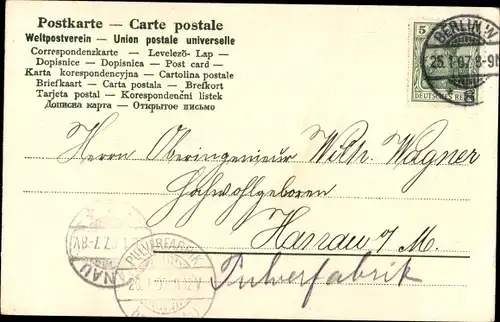 Postkarte — Carte postale
Weltpostverein — Union postale universelle
Correspondenzkarte — Levelező-Lap —
Dopisnice — Dopisnica — Post card —
Karta korespondencyjna — Cartolina postale
Briefkaart — Carta postala — Brefkort
Tarjeta postal — Korespondenční lístek
Дописна карта — Открытое письмо
5
DEUTSCHES REICH
BERLIN W
Herrn Oberingenieur Wilh. Wagner
Hochwohlgeboren
Hanau / M.
Pulverfabrik
PULVERFABRIK